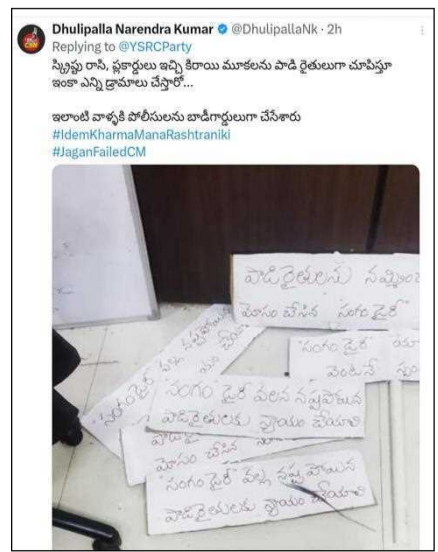 Dhulipalla Narendra Kumar @DhulipallaNk · 2h
Replying to @YSRCParty
స్క్రిప్టు రాసి, ప్లకార్డులు ఇచ్చి కిరాయి మూకలను పాడి రైతులుగా చూపిస్తూ
ఇంకా ఎన్ని డ్రామాలు చేస్తారో...
ఇలాంటి వాళ్ళకి పోలీసులను బాడీగార్డులుగా చేసేశారు
#IdemKharmaManaRashtraniki
#JaganFailedCM
పాడిరైతులను
మోసం చేసిన "సంగం డైరీ"
"సంగం డైరీ"
వెంటనే
"సంగం" డైరీ వలన నష్టపోయిన
పాడిరైతులకు న్యాయం చేయాలి
మోసం చేసిన
"సంగం డైరీ" వల్ల నష్ట పోయిన
పాడిరైతులకు న్యాయం చేయాలి